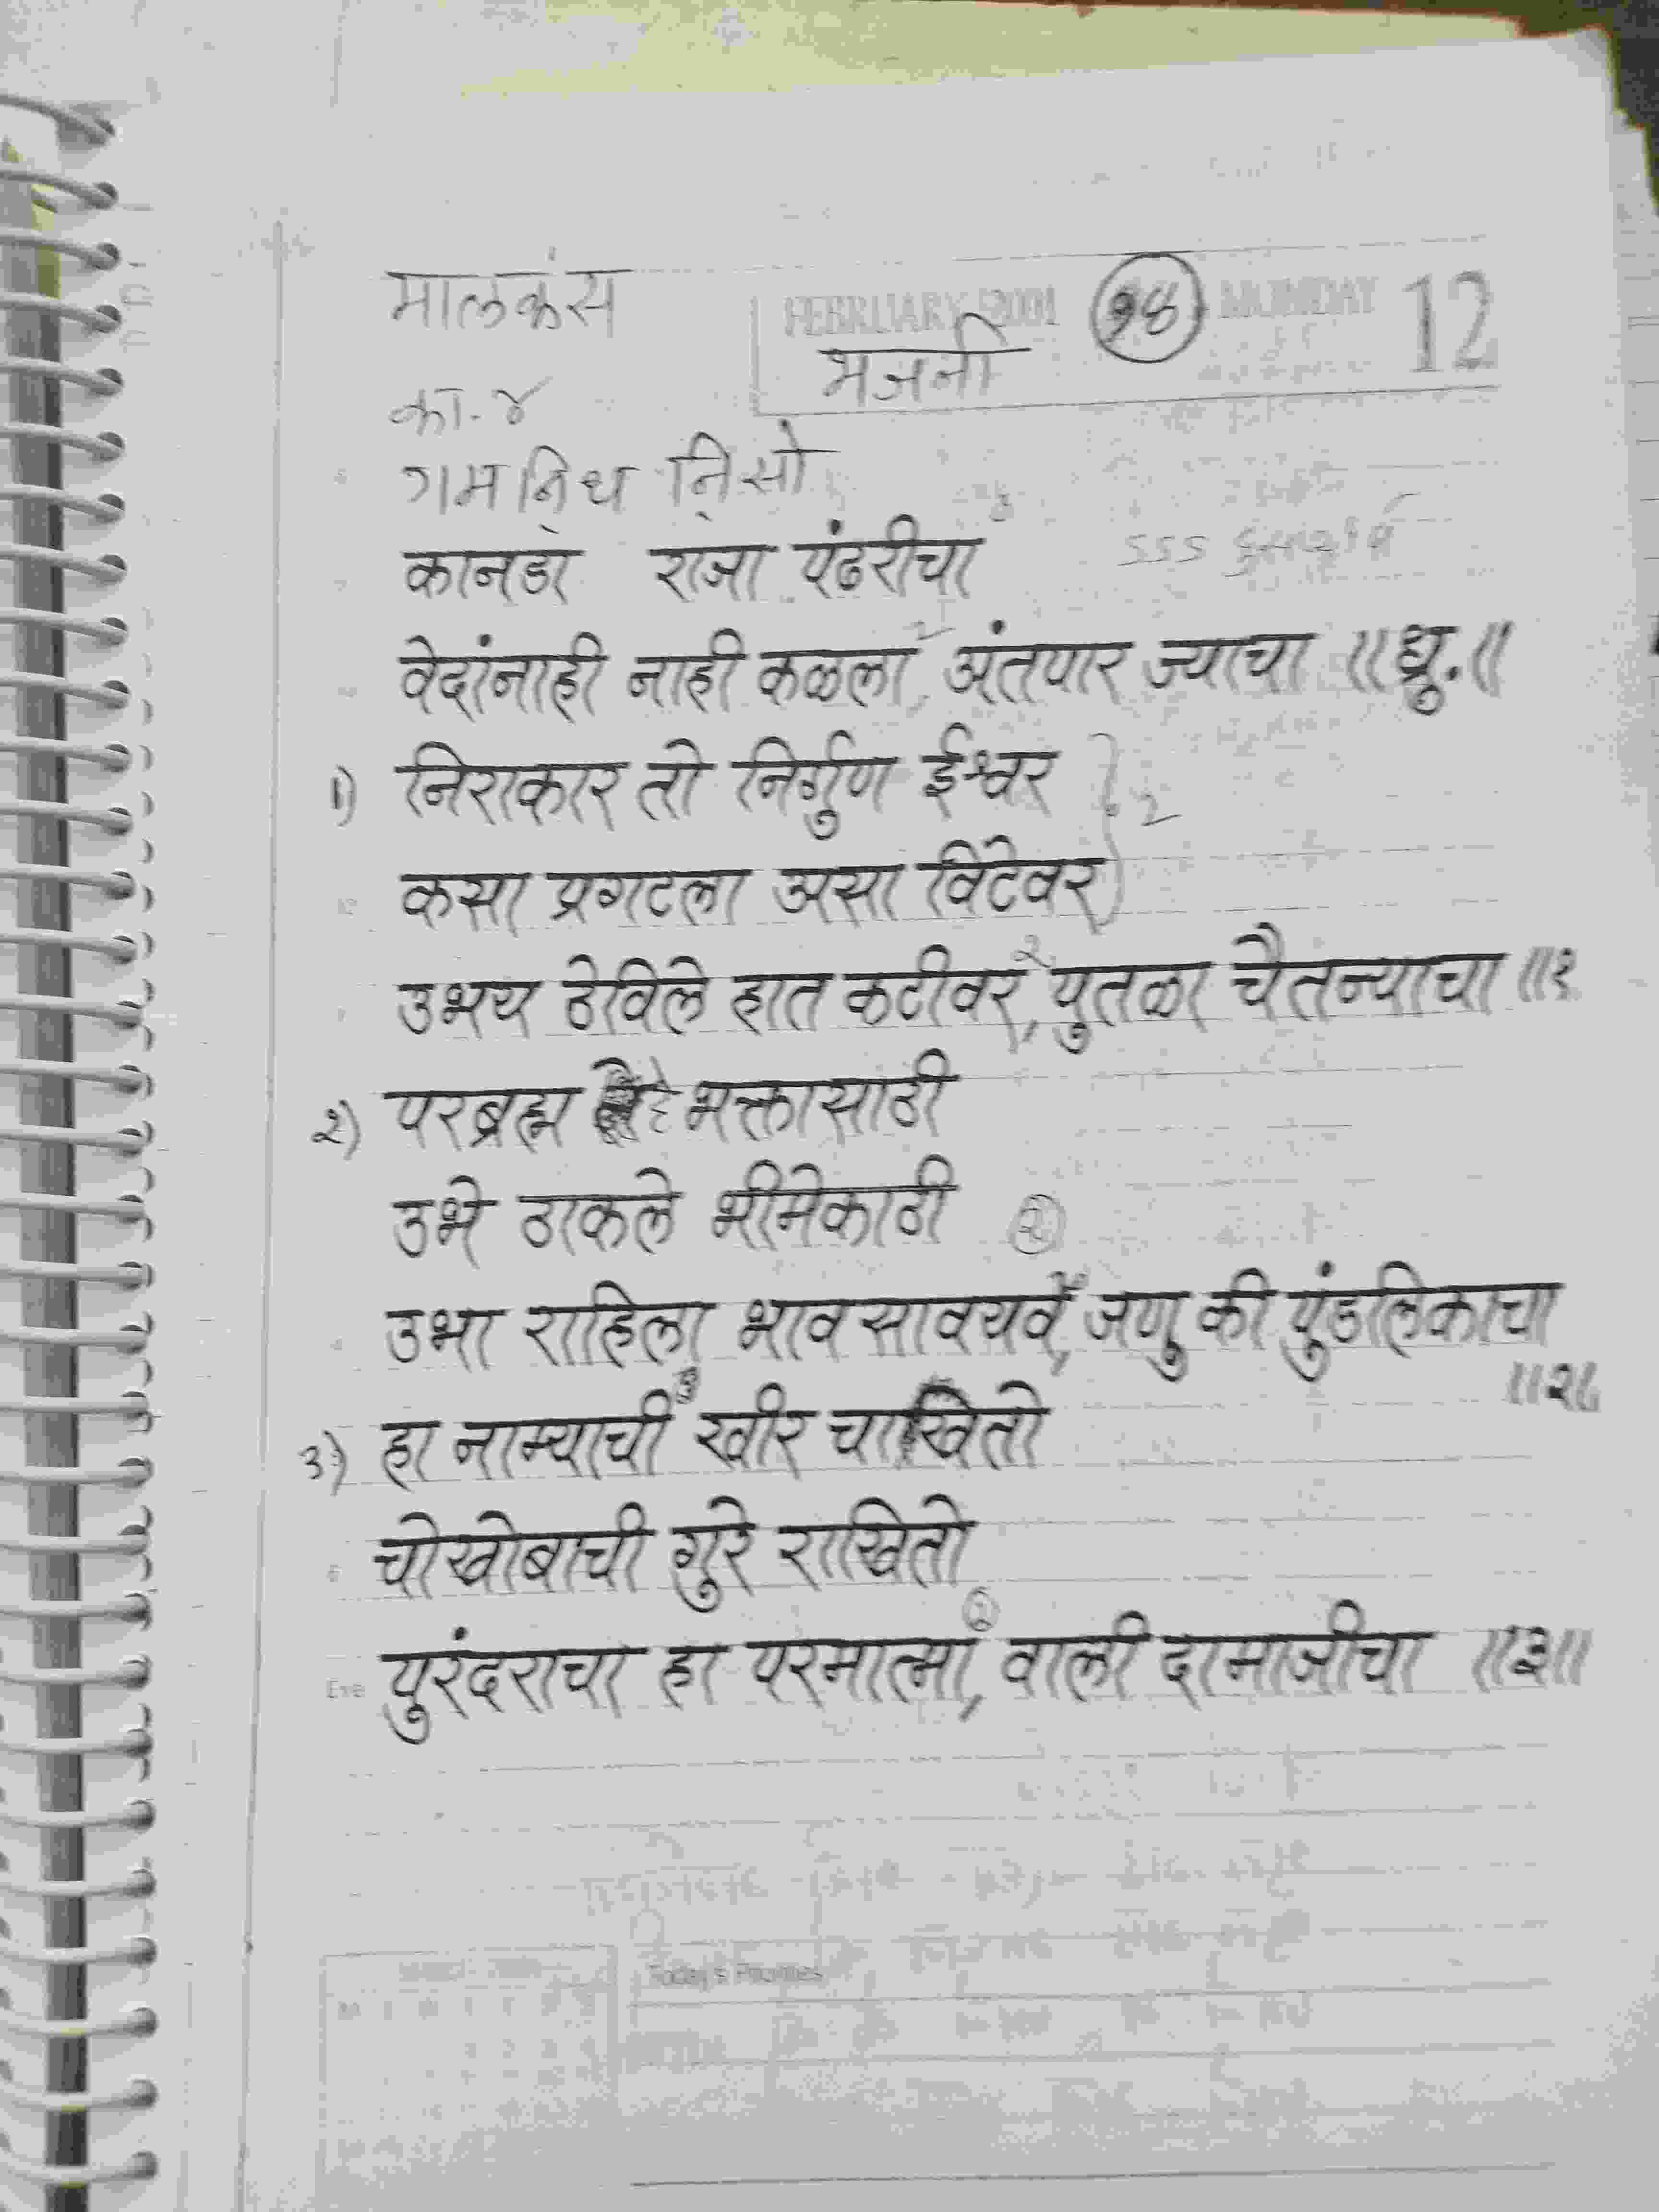 मालकंस
FEBRUARY 2001 १४ MONDAY 12
भजनी
का. ४
गम नि॒ध॒ नि॒सां
कानडा राजा पंढरीचा
वेदांनाही नाही कळला, अंतपार ज्याचा ॥ध्रु.॥
1) निराकार तो निर्गुण ईश्वर } 2
कसा प्रगटला असा विटेवर
उभय ठेविले हात कटीवर, पुतळा चैतन्याचा ॥१
२) परब्रह्म हे भक्तासाठी
उभे ठाकले भीमेकाठी २
उभा राहिला भाव सावयव, जणु की पुंडलिकाचा
॥२॥
3) हा नाम्याची खीर चाखितो
चोखोबाची गुरे राखितो
पुरंदराचा हा परमात्मा, वाली दामाजीचा ॥३॥
Eve
Today's Priorities